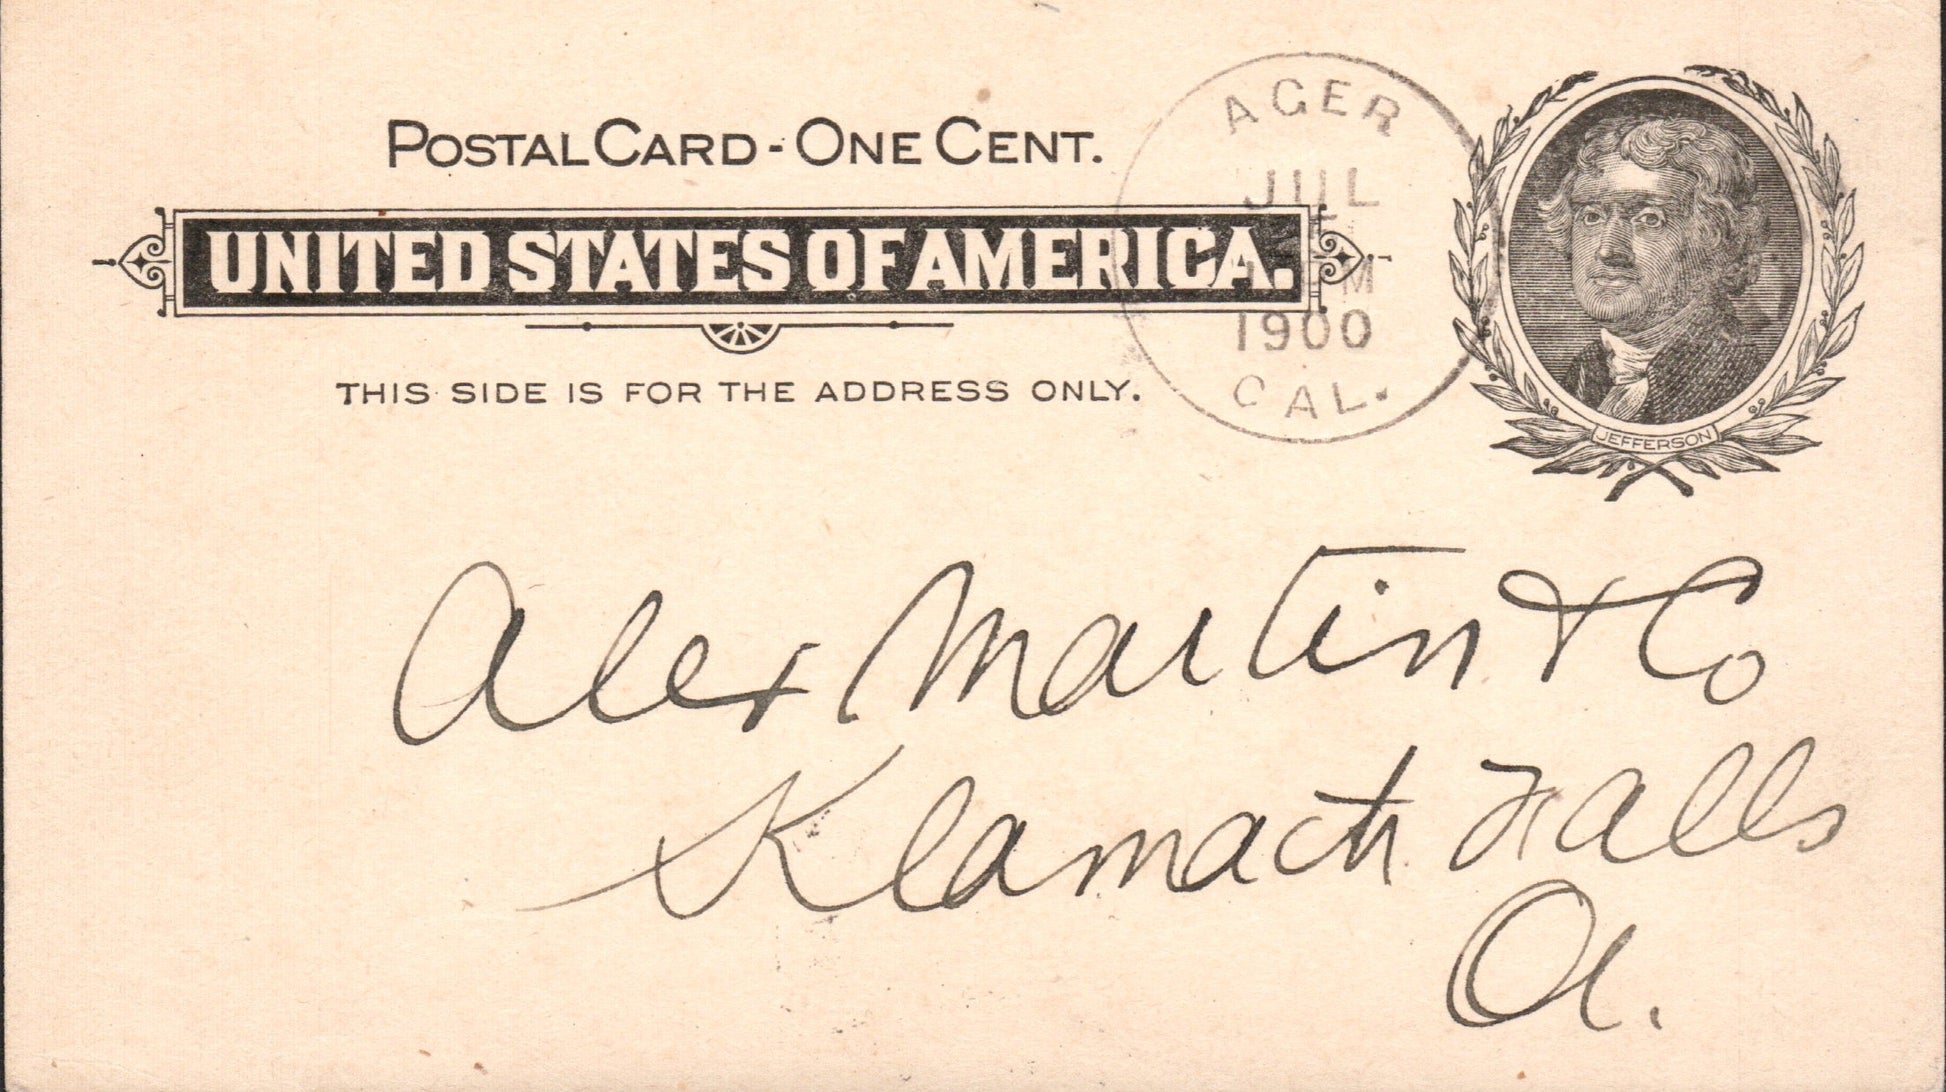 POSTAL CARD - ONE CENT.
UNITED STATES OF AMERICA.
THIS SIDE IS FOR THE ADDRESS ONLY.
AGER
JUL
M
1900
CAL.
JEFFERSON
Alex Martin & Co
Klamath Falls
Or.